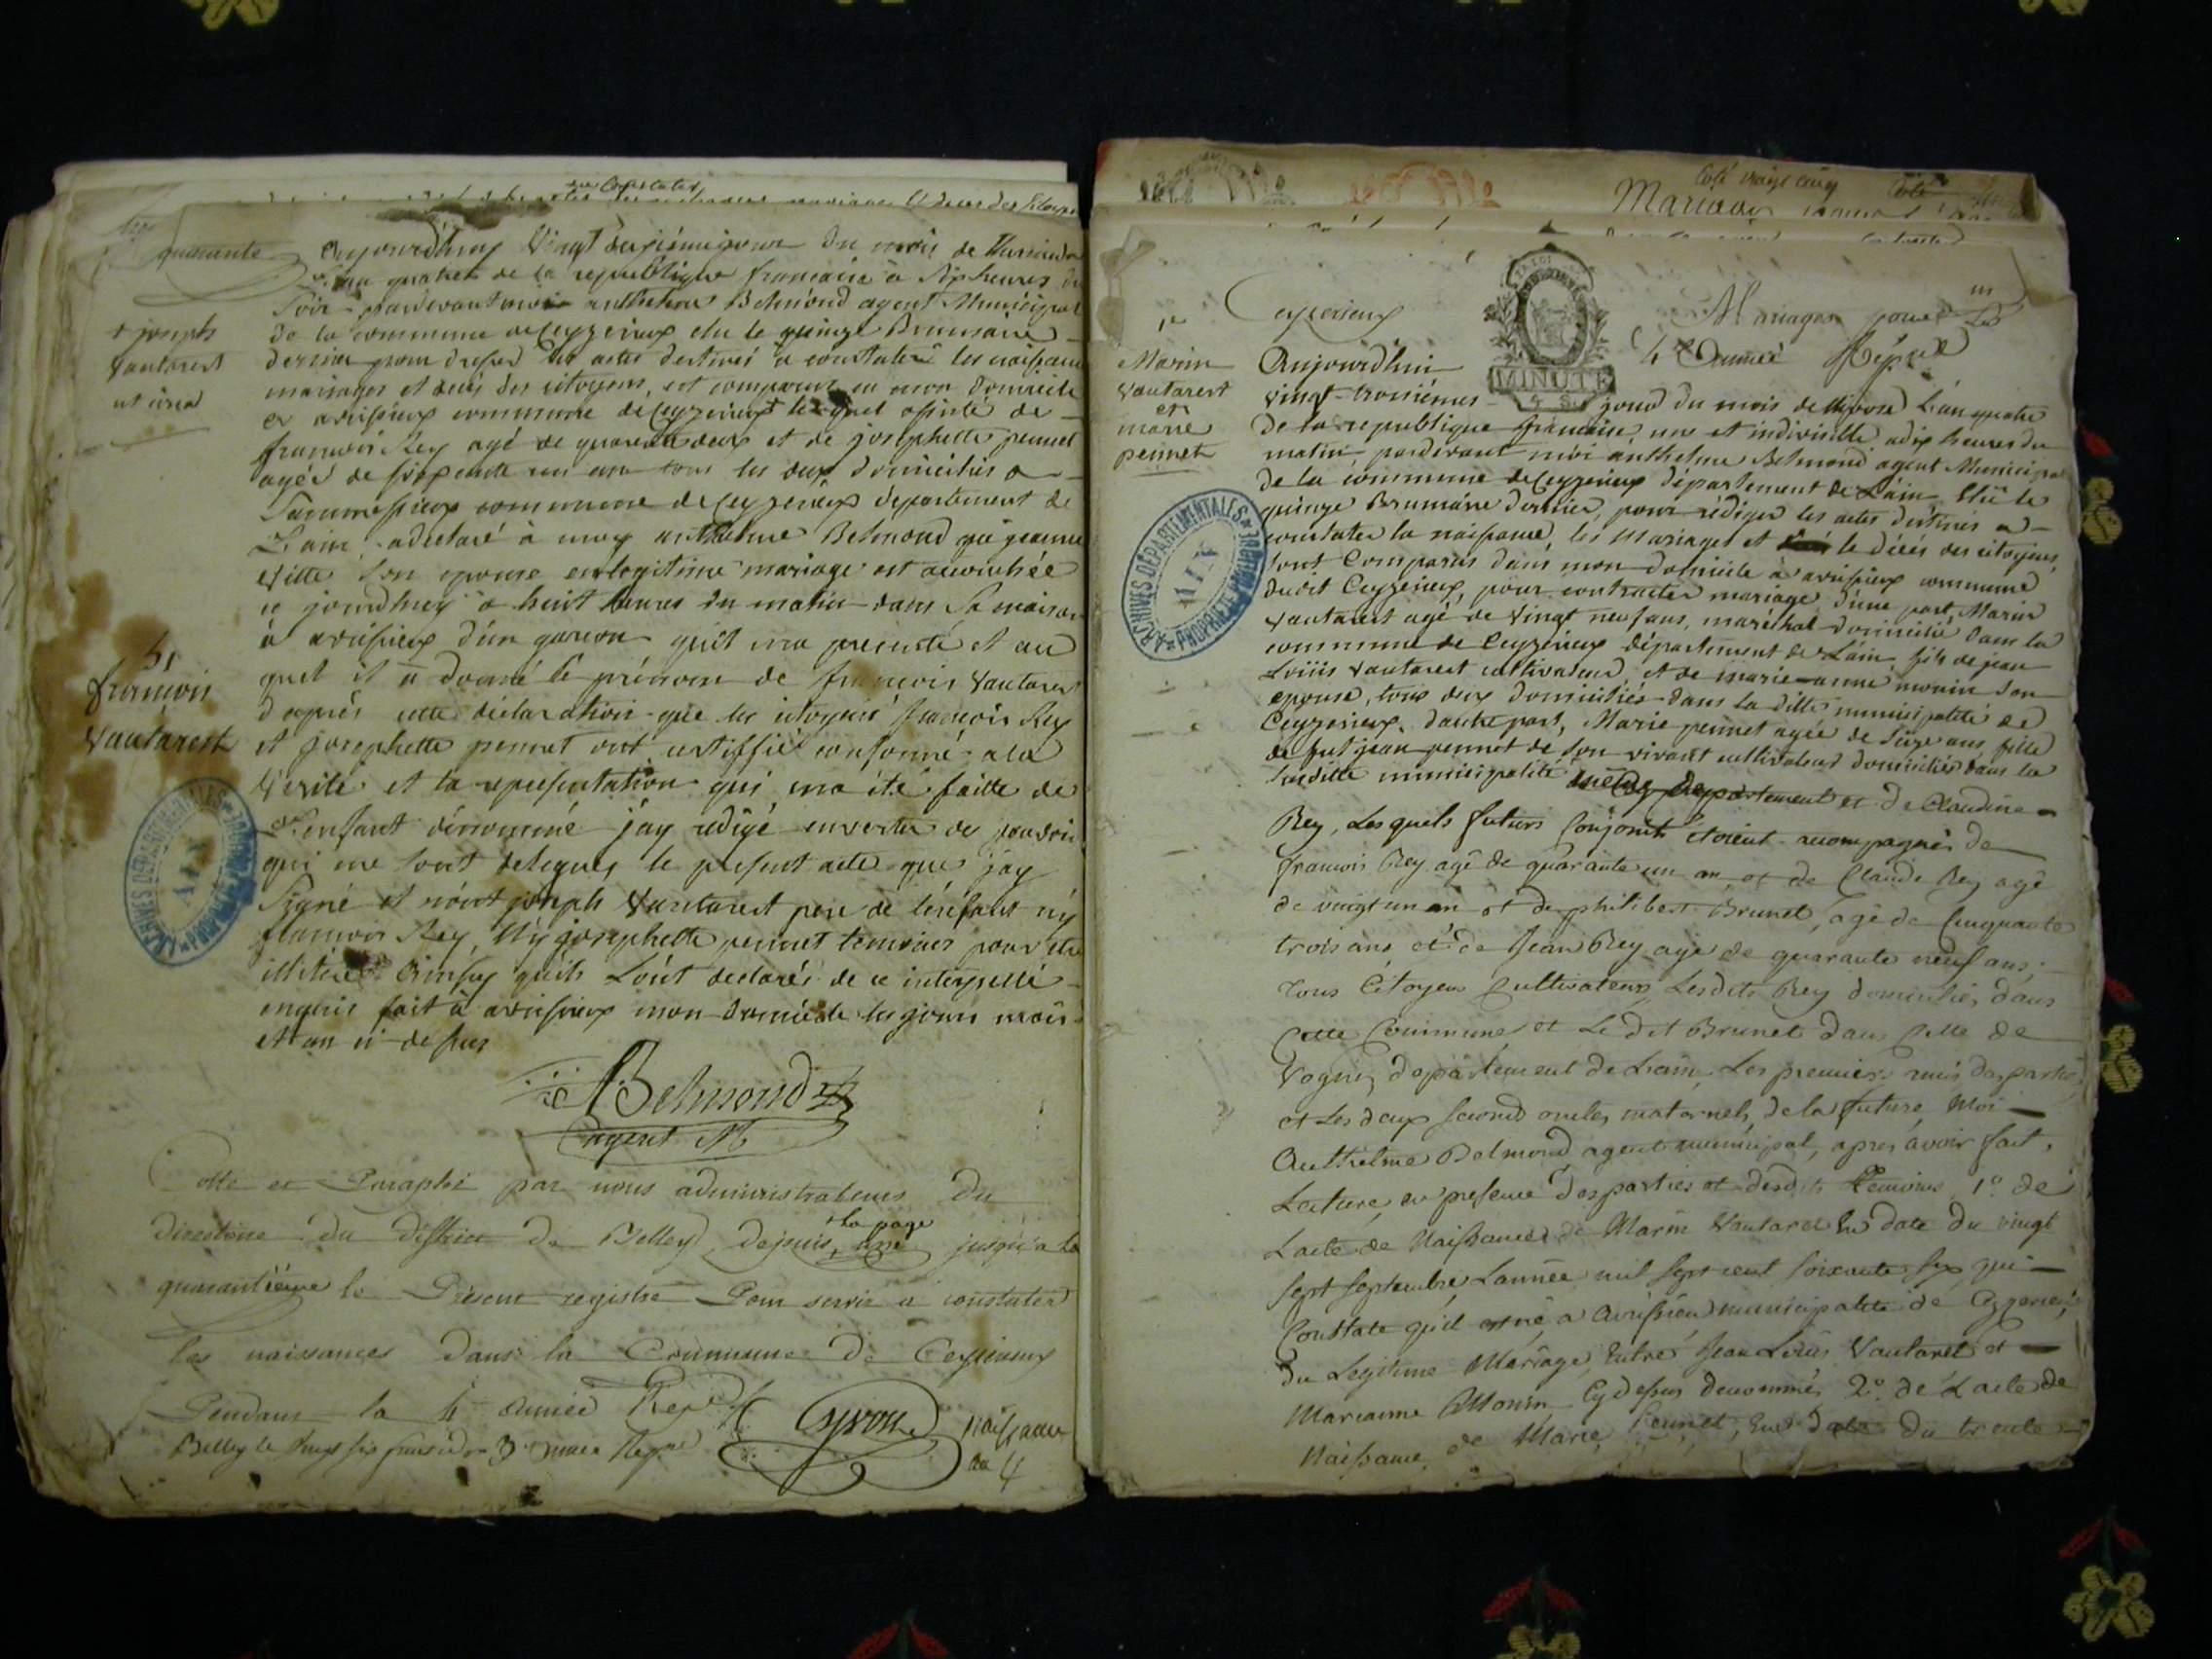 quarante
+ joseph
vautarest
est cinq
51
françois
vautarest
aujourd'huy vingt deuxième jour du mois de
l'an quatre de la republique francaise a six heures du
soir pardevant moi anthelme Belmond agent Municipal
de la commune de Ceyzerieux elu le quinze Brumaire
dernier pour dresser les actes destinés a constater les naissances
mariages et deces des citoyens, est comparu en mon domicile
a avrissieux commune de Ceyzerieux + lequel assisté de
francois Rey agé de quarante deux et de josephette pennet
agée de soixante un an tous les deux domiciliés a
commune de Ceyzerieux departement de
L'ain, a declaré à moy anthelme Belmond que jeanne
vitte son epouse en legitime mariage est acouchée
ce jourdhuy a huit heures du matin dans sa maison
à avrissieux d'un garcon quil ma presenté et au
quel il a donné le prénom de francois vautarest
d'après cette déclaration que les citoyens francois Rey
et josephette pennet ont certiffié conforme a la
verité et la representation qui ma été faitte de
l'enfant dénommé j'ay rédigé en vertu des pouvoirs
qui me sont delegués le present acte que j'ay
signé et nont joseph vautarest pere de l'enfant ny
francois Rey, ny josephette pennet temoins pour etre
illitérés ainsy quils l'ont declarés de ce interpellé
enquis fait à avrissieux mon domicile les jours mois
et an ci-dessus
Belmond
agent M
Cotté et Paraphé par nous administrateurs du
directoire du district de Belley depuis la page une jusqu'a la
quarantième le Présent registre Pour servir a constater
les naissances dans la Commune de Ceyzerieux
Pendant la 4e année Rep.
Belley le vingt six fructidor 3e année Rep.
Naissance
an 4
Coté vingt cinq
Mariages
Ceyzerieux
Mariages pour
4e année Rép.
MINUTE
1er
Marin
vautarest
et
marie
pennet
Aujourd'hui
vingt-troisième jour du mois de nivose L'an quatre
de la republique francaise, une et indivisible a dix heures du
matin pardevant moi anthelme Belmond agent Municipal
de la commune de Ceyzerieux département de L'ain, Elû le
quinze Brumaire dernier, pour rédiger les actes destinés a
constater la naissance, les Mariages et le décès des citoyens,
sont Comparus dans mon domicile à avrissieux commune
dudit Ceyzerieux, pour contracter mariage d'une part Marin
vautarest agé de vingt neuf ans, maréchal domicilié dans la
commune de Ceyzerieux département de L'ain fils de jean
Loüis vautarest cultivateur, et de marie-anne monin son
epouse, tous deux domiciliés dans la ditte municipalité de
Ceyzerieux, dautre part, Marie pennet agée de seize ans, fille
de fut jean pennet de son vivant cultivateur domicilié dans la
susditte municipalité même département et de Claudine
Rey, Lesquels futurs Conjoints étoient acompagnés de
francois Rey agé de quarante un an, et de Claude Rey agé
de vingt un an et de philibert Brunet, agé de Cinquante
trois ans, et de Jean Rey agé de quarante neuf ans,
tous Citoyens Cultivateurs, Lesdits Rey domiciliés dans
cette Commune, et Ledit Brunet dans celle de
Vognes, département de Lain, Les premiers amis des parties
et Les deux seconds oncles maternels de la future, Moi
Anthelme Belmond agent municipal, apres avoir fait
Lecture en presence des parties et desdits temoins 1o. de
Lacte de Naissance de Marin Vautaret En date du vingt
sept septembre Lannée mil sept cent soixante six qui
Constate qu'il est né a avrissieu municipalité de Ceyzerieu,
du Legitime Mariage, Entre Jean Loüis Vautaret et
Marianne Monin Cy dessus denommés 2o. de Lacte de
Naissance de Marie Pennet, En date du trente
ARCHIVES DEPARTEMENTALES
AIN
PROPRIETE PUBLIQUE
ARCHIVES DEPARTEMENTALES
AIN
PROPRIETE PUBLIQUE